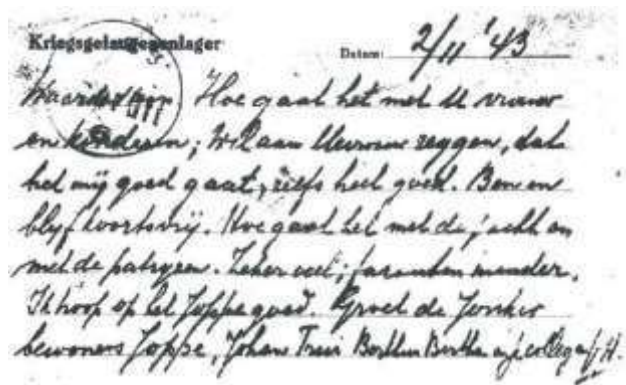 Kriegsgefangenenlager Datum: 2/11 '43
Hoe gaat het met U vrouw
en kinderen; Wil aan Mevrouw zeggen, dat
het mij goed gaat, zelfs heel goed. Ben en
blijf koortsvrij. Hoe gaat het met de jacht en
met de patrijzen. Zeker veel; fazanten minder.
Ik hoop op het Joppe goed. Groet de Jonker
bewoners Joppe, Johan Trui Berthe en collega's H.